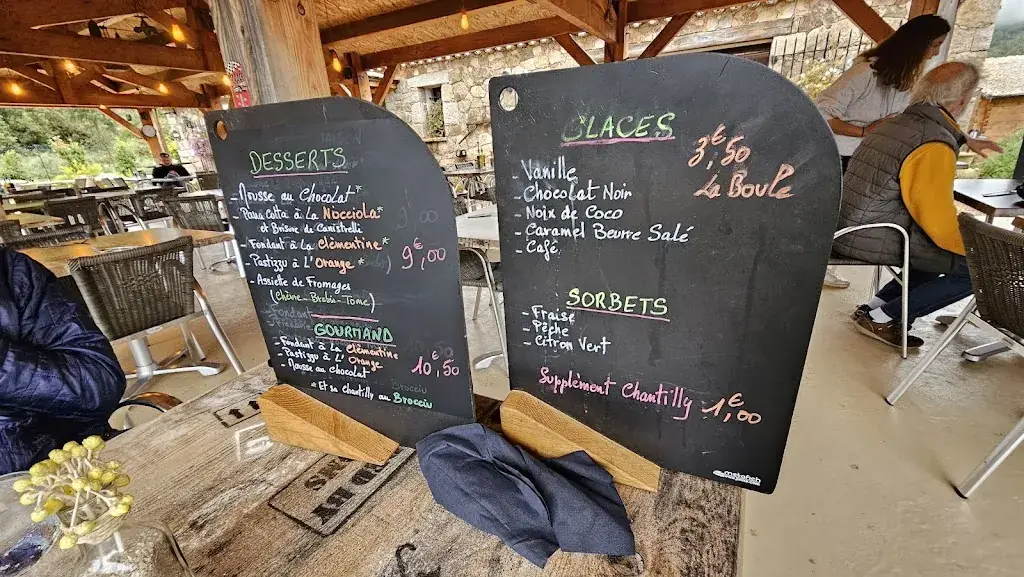 DESSERTS
- Mousse au Chocolat*
- Pana Cotta à La Nocciola*
et Brisure de Canistrelli
- Fondant à la Clémentine*
- Pastizzu à L'Orange*
9€,00
- Assiette de Fromages
(Chèvre - Brebis - Tome)
GOURMAND
- Fondant à La Clémentine
- Pastizzu à L'Orange
- Mousse au Chocolat
10€,50
* Et sa Chantilly au Brocciu
GLACES
3€,50
La Boule
- Vanille
- Chocolat Noir
- Noix de Coco
- Caramel Beurre Salé
- Café
SORBETS
- Fraise
- Pêche
- Citron Vert
Supplément Chantilly 1€,00